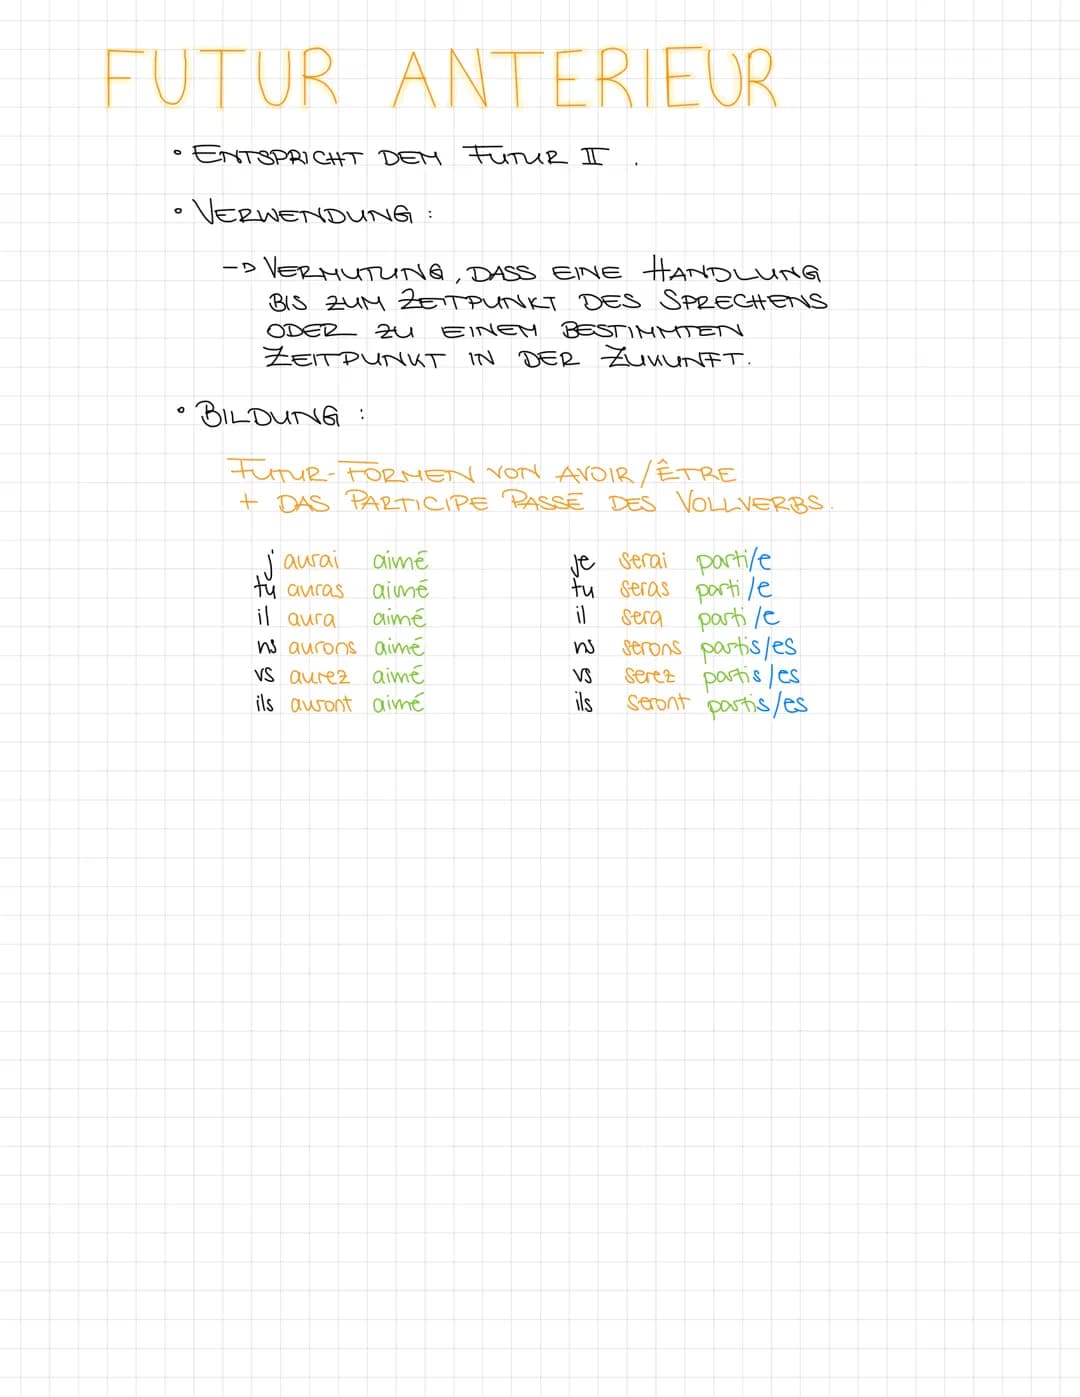 FUTUR ANTERIEUR
• ENTSPRICHT DEM FUTUR II .
• VERWENDUNG :
-> VERMUTUNG, DASS EINE HANDLUNG
BIS ZUM ZEITPUNKT DES SPRECHENS
ODER ZU EINEM BESTIMMTEN
ZEITPUNKT IN DER ZUKUNFT.
• BILDUNG :
FUTUR-FORMEN VON AVOIR/ÊTRE
+ DAS PARTICIPE PASSÉ DES VOLLVERBS.
j' aurai aimé je serai parti/e
tu auras aimé tu seras parti/e
il aura aimé il sera parti/e
ns aurons aimé ns serons partis/es
vs aurez aimé vs serez partis/es
ils auront aimé ils seront partis/es